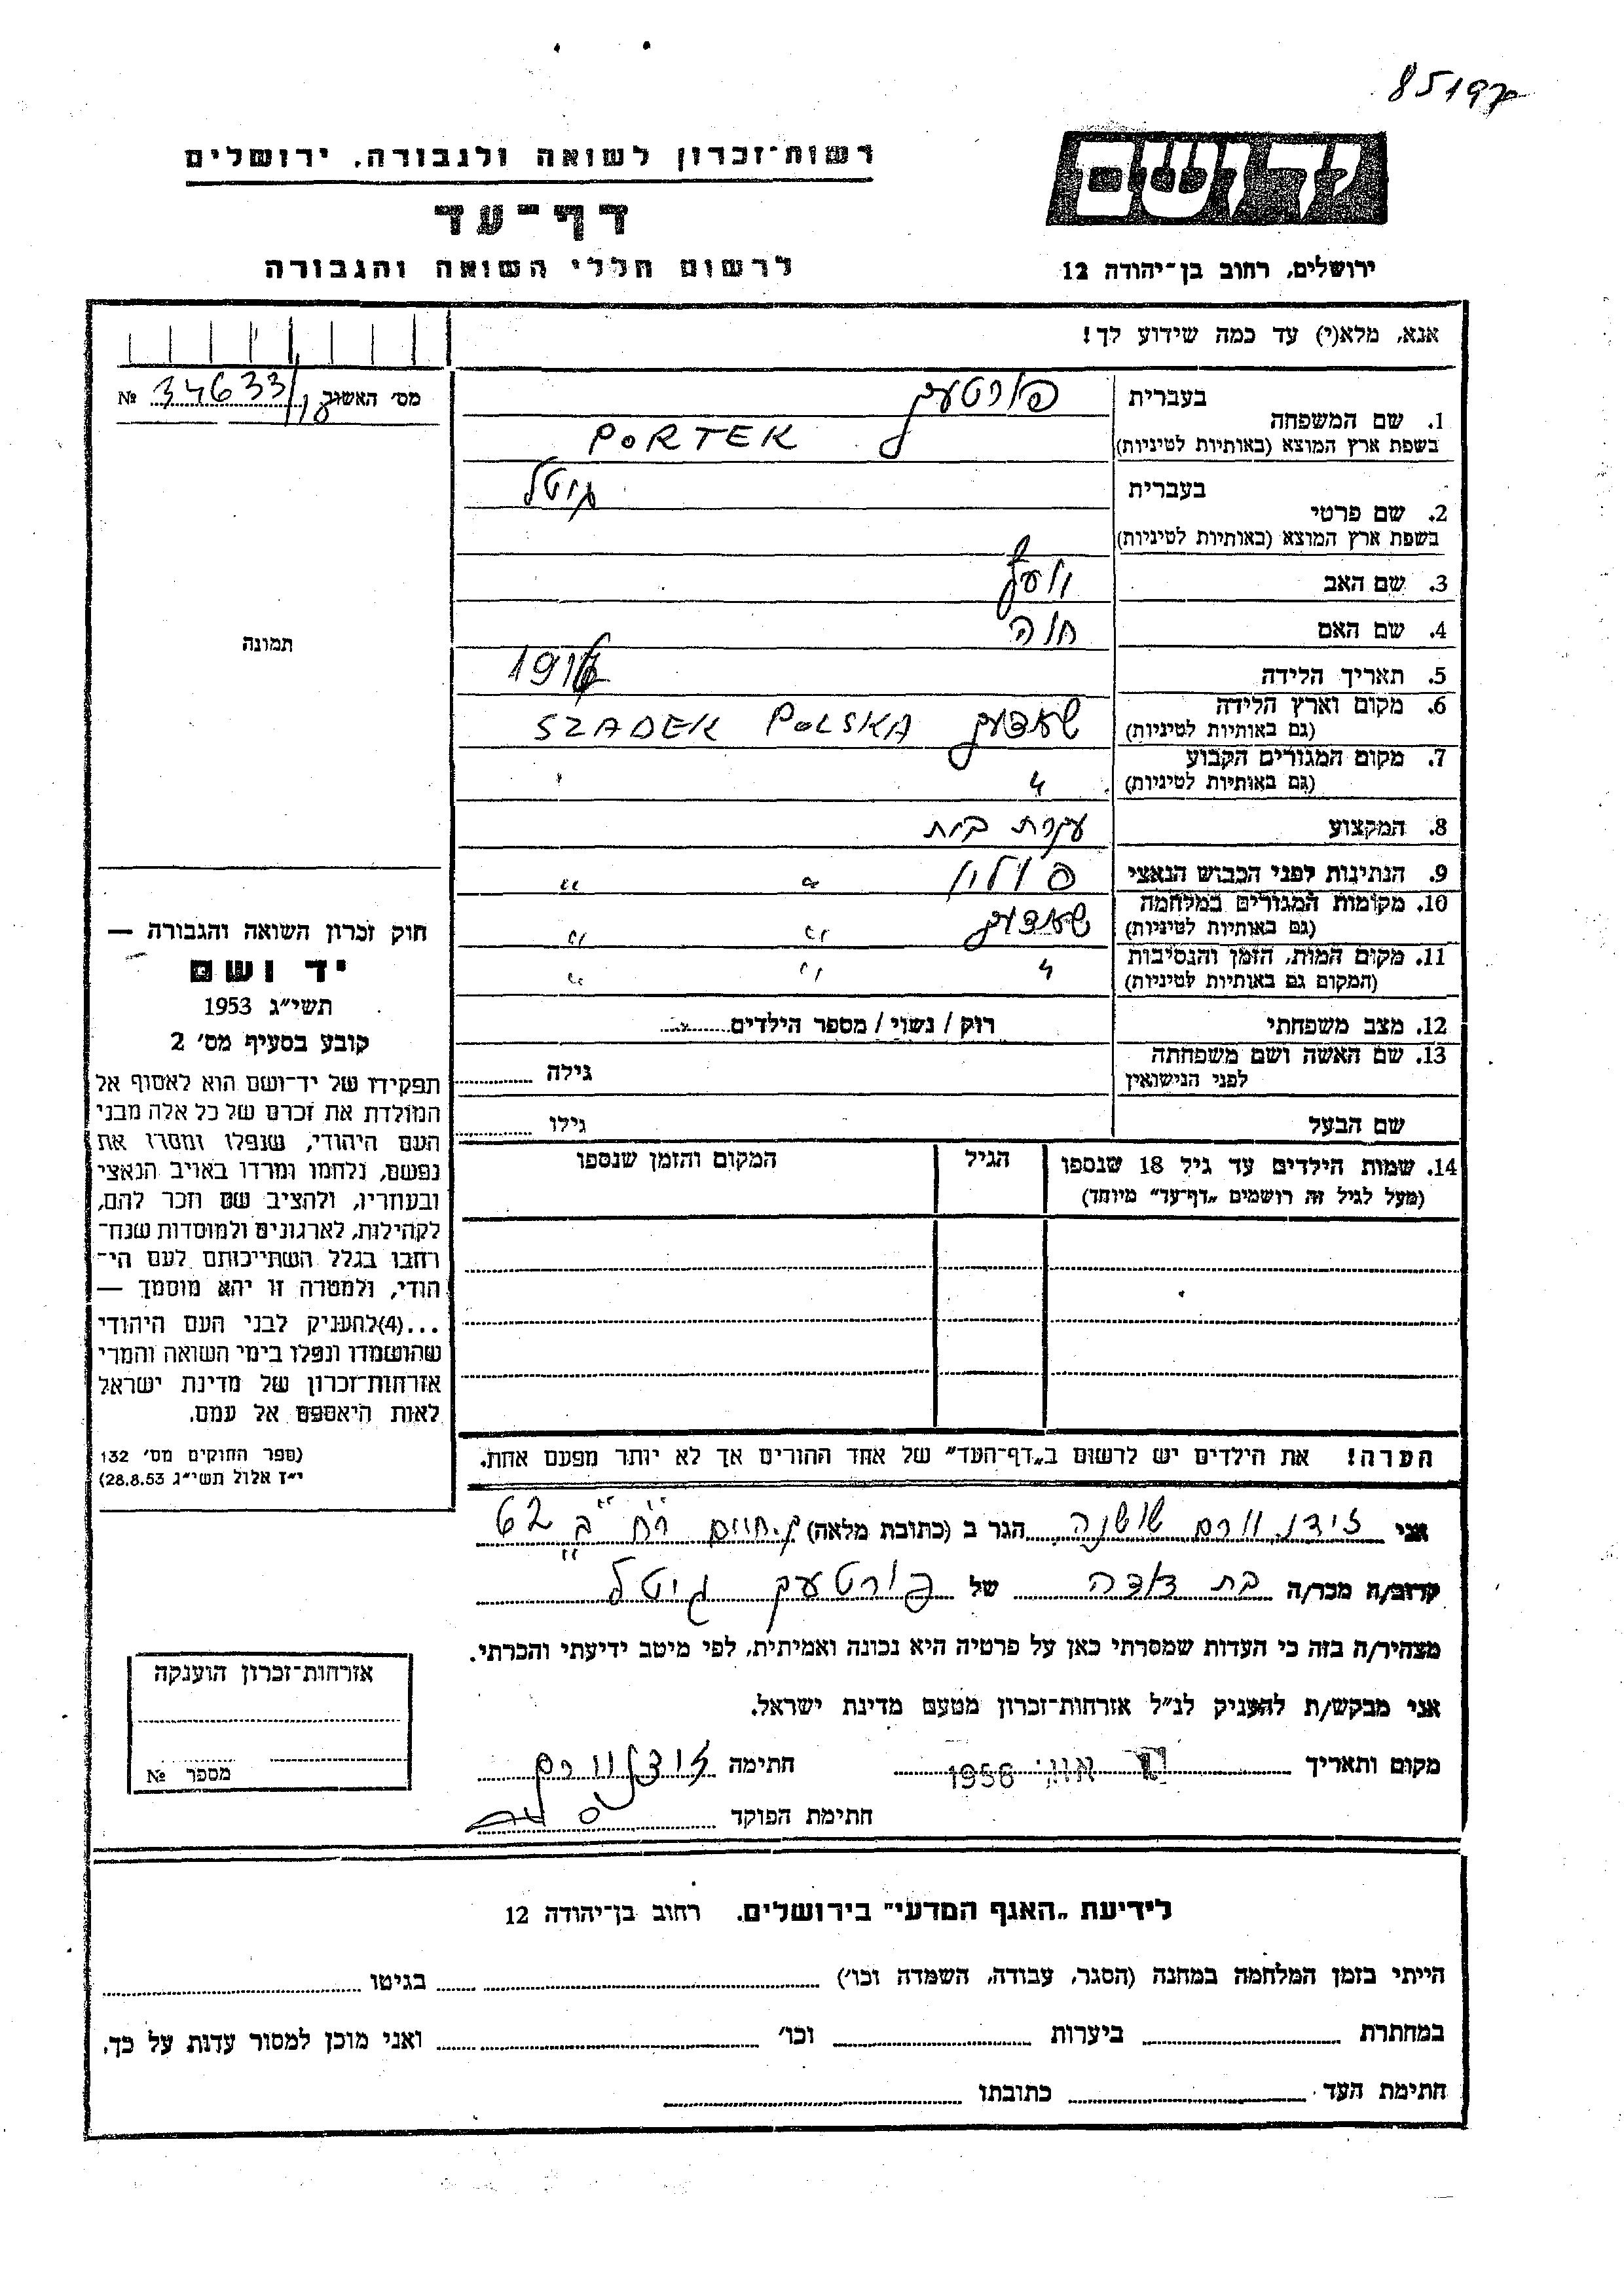 85197
רשות-זכרון לשואה ולגבורה. ירושלים
יד ושם
דף-עד
לרשום חללי השואה והגבורה
ירושלים, רחוב בן-יהודה 12
אנא, מלא(י) עד כמה שידוע לך!
מס׳ האשור 34633 №
1. שם המשפחה
בעברית פורטעק
בשפת ארץ המוצא (באותיות לטיניות) PORTEK
2. שם פרטי
בעברית גיטל
בשפת ארץ המוצא (באותיות לטיניות)
3. שם האב
4. שם האם חוה
5. תאריך הלידה
6. מקום וארץ הלידה
(גם באותיות לטיניות) שאדעק SZADEK POLSKA
7. מקום המגורים הקבוע
(גם באותיות לטיניות) "
8. המקצוע עקרת בית
9. הנתינות לפני הכבוש הנאצי פולין " "
10. מקומות המגורים במלחמה
(גם באותיות לטיניות) שאדעק " "
11. מקום המות, הזמן והנסיבות
(המקום גם באותיות לטיניות) " " "
12. מצב משפחתי רוק / נשוי / מספר הילדים
13. שם האשה ושם משפחתה
לפני הנישואין גילה
שם הבעל גילו
14. שמות הילדים עד גיל 18 שנספו הגיל המקום והזמן שנספו
(מעל לגיל זה רושמים „דף-עד" מיוחד)
הערה! את הילדים יש לרשום ב„דף-העד" של אחד ההורים אך לא יותר מפעם אחת.
תמונה
חוק זכרון השואה והגבורה —
יד ושם
תשי״ג 1953
קובע בסעיף מס׳ 2
תפקידו של יד-ושם הוא לאסוף אל
המולדת את זכרם של כל אלה מבני
העם היהודי, שנפלו ומסרו את
נפשם, נלחמו ומרדו באויב הנאצי
ובעוזריו, ולהציב שם וזכר להם,
לקהילות, לארגונים ולמוסדות שנח־
רחבו בגלל השתייכותם לעם הי־
הודי, ולמטרה זו יהא מוסמך —
...(4)להעניק לבני העם היהודי
שהושמדו ונפלו בימי השואה והמרי
אזרחות-זכרון של מדינת ישראל
לאות היאספם אל עמם.
(ספר החוקים מס׳ 132
י״ז אלול תשי״ג 28.8.53)
אני זידנוורם שושנה הגר ב (כתובת מלאה) ק. חיים רח׳ ב 62
קרוב/ה מכר/ה בת דודה של פורטעק גיטל
מצהיר/ה בזה כי העדות שמסרתי כאן על פרטיה היא נכונה ואמיתית, לפי מיטב ידיעתי והכרתי.
אני מבקש/ת להעניק לנ״ל אזרחות-זכרון מטעם מדינת ישראל.
מקום ותאריך אוג׳ 1956 חתימה זידנוורם
חתימת הפוקד
אזרחות-זכרון הוענקה
מספר №
לידיעת „האגף המדעי" בירושלים. רחוב בן-יהודה 12
הייתי בזמן המלחמה במחנה (הסגר, עבודה, השמדה וכו׳) בגיטו
במחתרת ביערות וכו׳ ואני מוכן למסור עדות על כך.
חתימת העד כתובתו